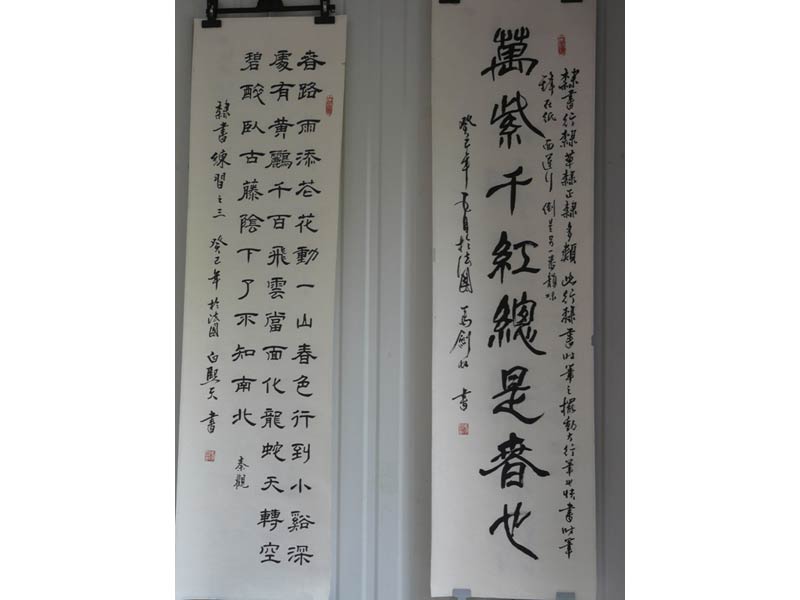 隸書行隸草隸正隸多類 此行隸書時筆之擺動大行筆也快書時筆
鋒在紙面逆行 倒是另一番韻味
萬紫千紅總是春也
癸巳年 於法國 書
春路雨添花花動一山春色行到小谿深
處有黃鸝千百飛雲當面化龍蛇天轉空
碧醉臥古藤陰下了不知南北
秦觀
隸書練習之三 癸巳年於法國 白熙天 書